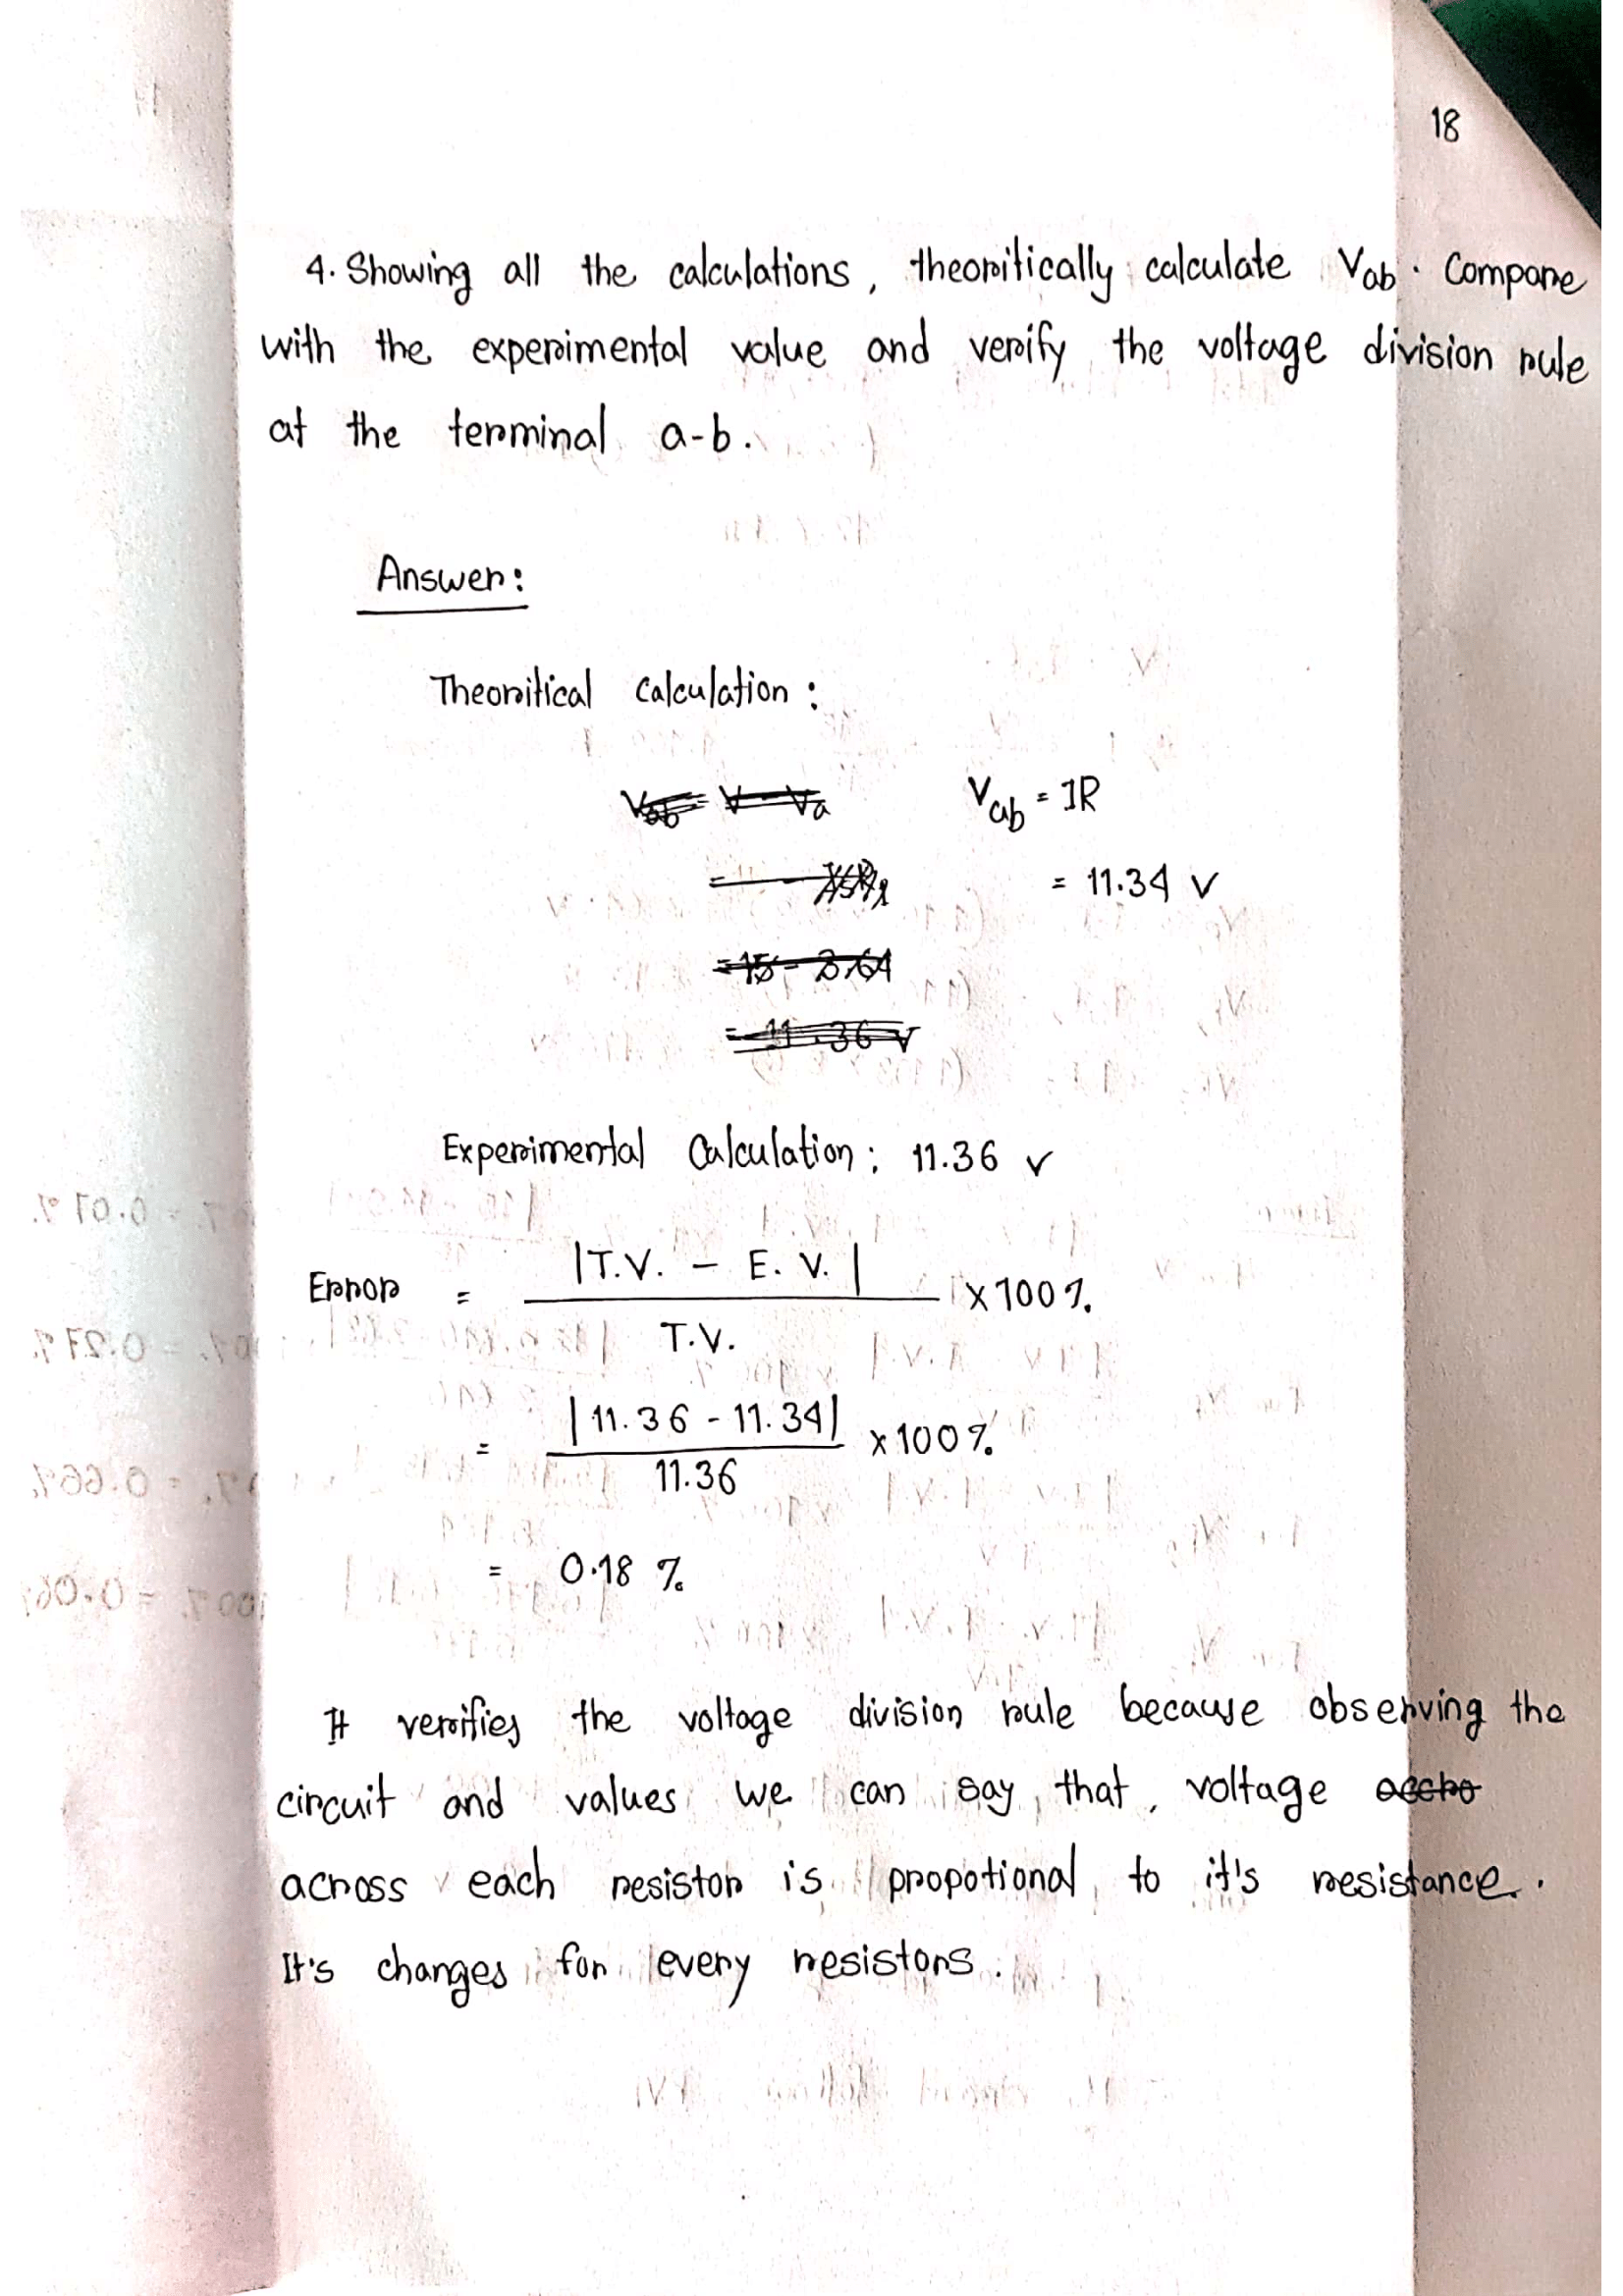 18
4. Showing all the calculations, theoritically calculate Vab. Compare
with the experimental value and verify the voltage division rule
at the terminal a-b.
Answer:
Theoritical Calculation:
Vab = V - Va
Vab = IR
= 11.34 V
= 15 - 3.64
= 11.36 V
Experimental Calculation: 11.36 V
Error = |T.V. - E.V.| / T.V. × 100%
= |11.36 - 11.34| / 11.36 × 100%
= 0.18 %
It verifies the voltage division rule because observing the
circuit and values we can say that, voltage accro
across each resistor is propotional to it's resistance.
It's changes for every resistors.